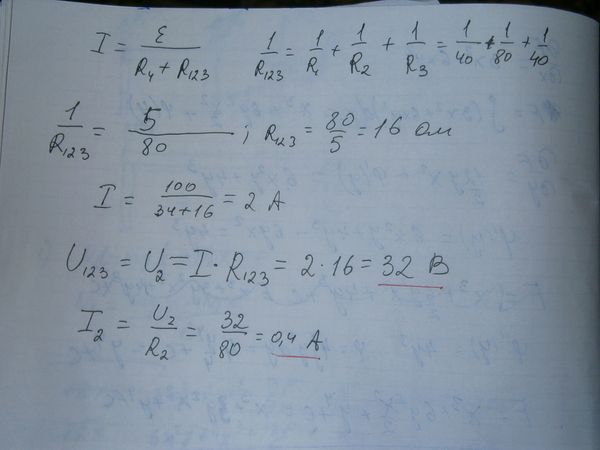 I = ε / (R₄ + R₁₂₃)   1/R₁₂₃ = 1/R₁ + 1/R₂ + 1/R₃ = 1/40 + 1/80 + 1/40
1/R₁₂₃ = 5/80 ; R₁₂₃ = 80/5 = 16 Ом
I = 100/(34+16) = 2 А
U₁₂₃ = U₂ = I · R₁₂₃ = 2 · 16 = 32 В
I₂ = U₂/R₂ = 32/80 = 0,4 А